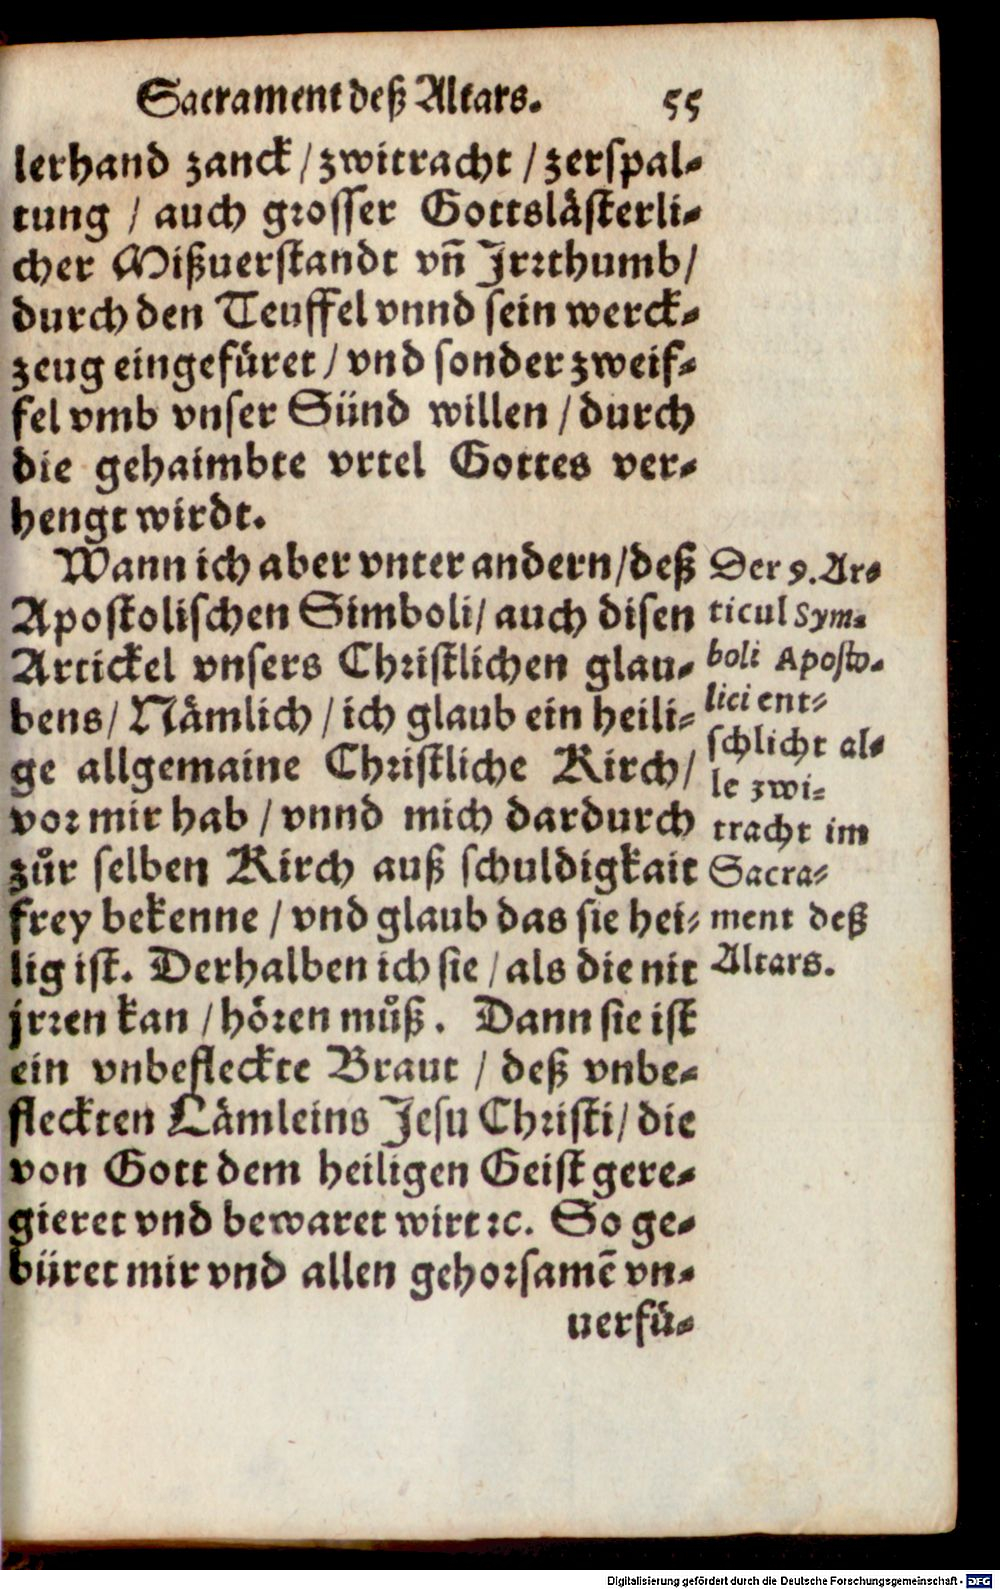 Sacrament deß Altars. 55
lerhand zanck / zwitracht / zerspal-
tung / auch grosser Gottslästerli-
cher Mißuerstandt vñ Jrrthumb /
durch den Teuffel vnnd sein werck-
zeug eingefüret / vnd sonder zweif-
fel vmb vnser Sünd willen / durch
die gehaimbte vrtel Gottes ver-
hengt wirdt.
Wann ich aber vnter andern / deß
Apostolischen Simboli / auch disen
Artickel vnsers Christlichen glau-
bens / Nämlich / ich glaub ein heili-
ge allgemaine Christliche Kirch /
vor mir hab / vnnd mich dardurch
zůr selben Kirch auß schuldigkait
frey bekenne / vnd glaub das sie hei-
lig ist. Derhalben ich sie / als die nit
jrren kan / hören můß. Dann sie ist
ein vnbefleckte Braut / deß vnbe-
fleckten Lämleins Jesu Christi / die
von Gott dem heiligen Geist gere-
gieret vnd bewaret wirt ꝛc. So ge-
büret mir vnd allen gehorsamẽ vn-
uerfü-
Der 9. Ar-
ticul Sym-
boli Aposto-
lici ent-
schlicht al-
le zwi-
tracht im
Sacra-
ment deß
Altars.
Digitalisierung gefördert durch die Deutsche Forschungsgemeinschaft - DFG